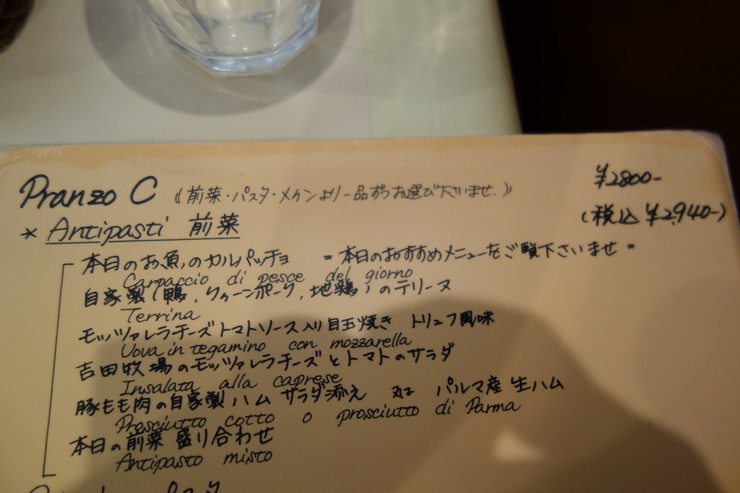 Pranzo C 《前菜・パスタ・メインより一品ずつお選び下さいませ.》 ¥2800-
* Antipasti 前菜 (税込 ¥2,940-)
本日のお魚のカルパッチョ =本日のおすすめメニューをご覧下さいませ=
Carpaccio di pesce del giorno
自家製(鴨,クィーンポーク,地鶏)のテリーヌ
Terrina
モッツァレラチーズトマトソース入り目玉焼き トリュフ風味
Uova in tegamino con mozzarella
吉田牧場のモッツァレラチーズとトマトのサラダ
Insalata alla caprese
豚もも肉の自家製ハム サラダ添え 又は パルマ産生ハム
Prosciutto cotto o prosciutto di Parma
本日の前菜盛り合わせ
Antipasto misto